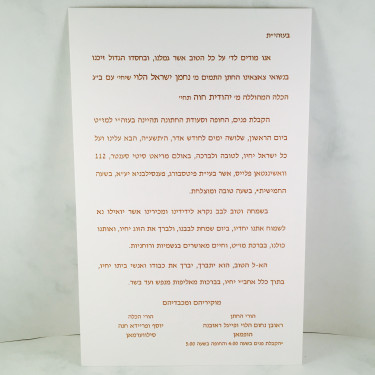 בעזהי"ת
אנו מודים לד' על כל הטוב אשר גמלנו, ובחסדו הגדול זיכנו
בנשואי צאצאינו החתן התמים מ' נחמן ישראל הלוי שיחי' עם ב"ג
הכלה המהוללה מ' יהודית חוה תחי'
הקבלת פנים, החופה וסעודת החתונה תהי'ינה בעזהי"י למז"ט
ביום הראשון, שלושה ימים לחודש אדר, ה'תשע"ה, הבא עלינו ועל
כל ישראל יחיו, לטובה ולברכה, באולם מריאט סיטי סענטר, 112
וואשינגטאן פלייס, אשר בעי"ת פיטסבורג, פענסילבניא יע"א, בשעה
החמישית, בשעה טובה ומוצלחת.
בשמחה וטוב לבב נקרא לידידינו ומכירינו אשר יואילו נא
לשמוח אתנו יחדיו, ביום שמחת לבבנו, ולברך את הזוג יחיו, ואותנו
כולנו, בברכת מז"ט, וחיים מאושרים בגשמיות ורוחניות.
הא-ל הטוב, הוא יתברך, יברך את כבודו ואנשי ביתו יחיו,
בתוך כלל אחב"י יחיו, בברכות מאליפות מנפש ועד בשר.
מוקיריהם ומכבדיהם
הורי החתן הורי הכלה
ראובן נחום הלוי ופייגל יוסף ופריידא חנה
הופמאן סילווערמאן
*הקבלת פנים בשעה 4:00 והחופה בשעה 5:00